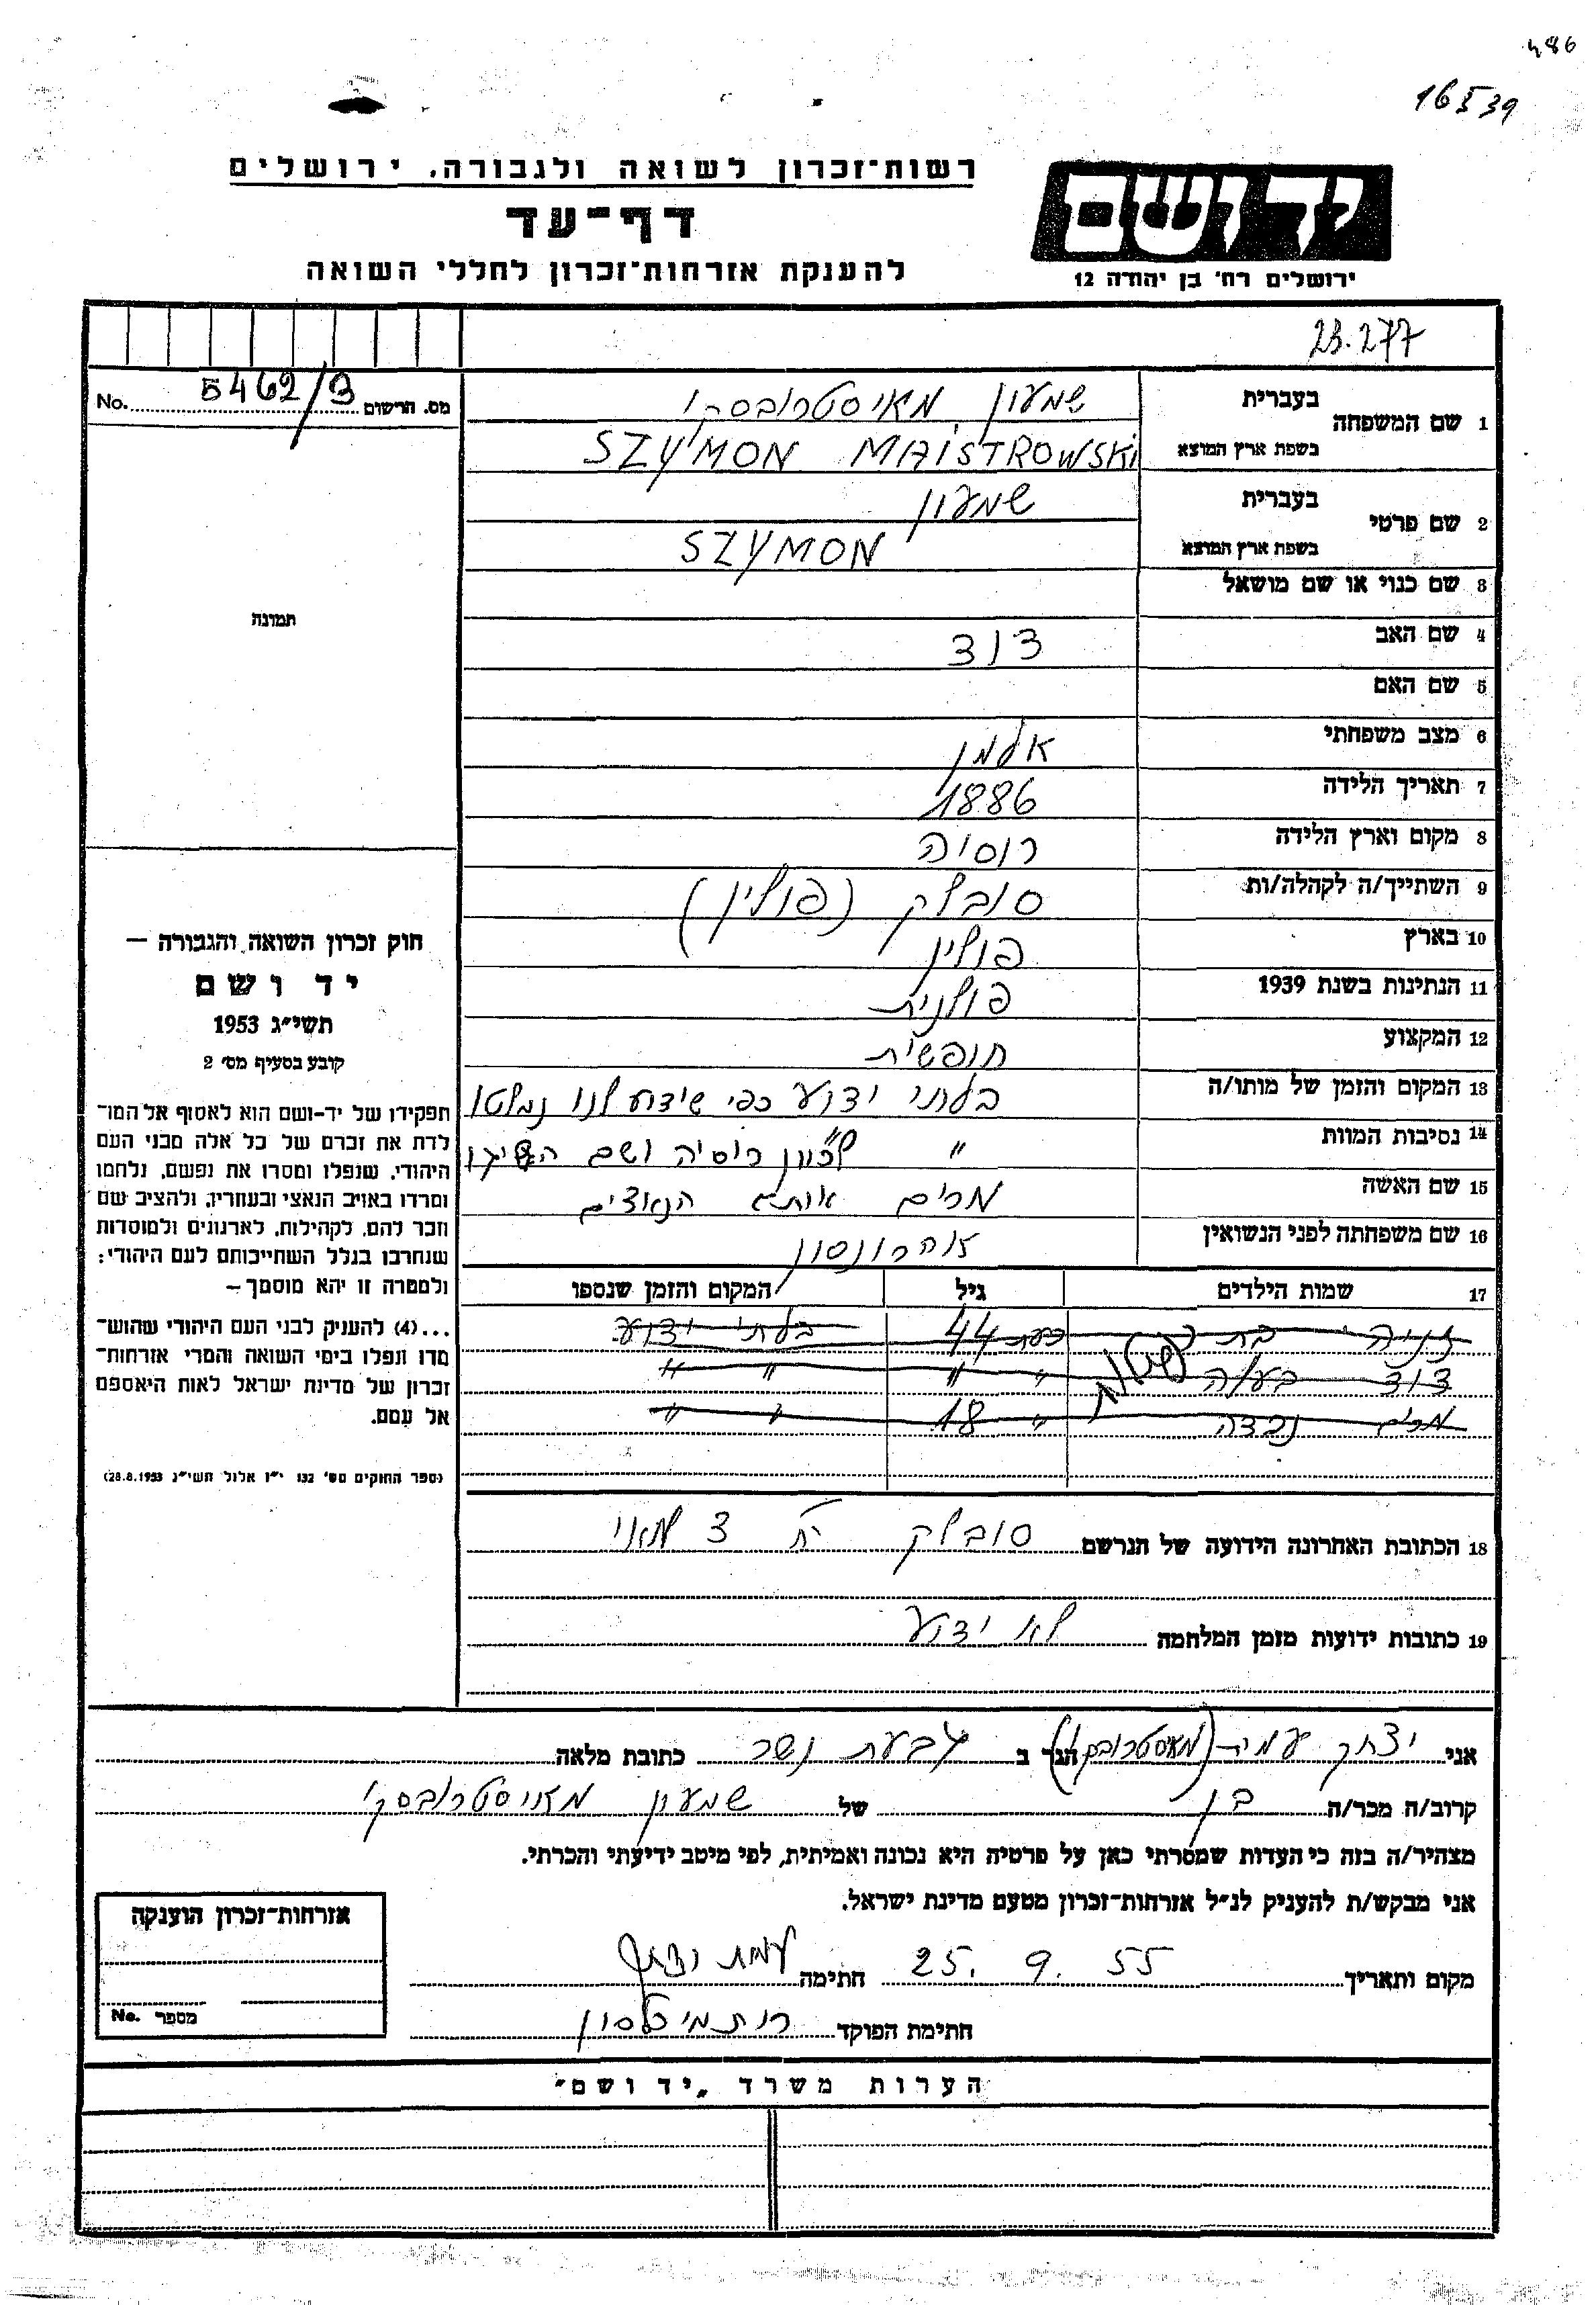 486
16 I 39
רשות־זכרון לשואה ולגבורה. ירושלים
דף־עד
להענקת אזרחות־זכרון לחללי השואה
יד ושם
ירושלים רח' בן יהודה 12
23.277
No. 5462/3 מס. הרישום
תמונה
1 שם המשפחה בעברית שמעון מאיסטרובסקי
בשפת ארץ המוצא SZYMON MAISTROWSKI
2 שם פרטי בעברית שמעון
בשפת ארץ המוצא SZYMON
3 שם כנוי או שם מושאל
4 שם האב דוד
5 שם האם
6 מצב משפחתי אלמן
7 תאריך הלידה 1886
8 מקום וארץ הלידה רוסיה
9 השתייך/ה לקהלה/ות סובלק (פולין)
10 בארץ פולין
11 הנתינות בשנת 1939 פולנית
12 המקצוע חופשית
13 המקום והזמן של מותו/ה בלתי ידוע כפי שידוע לנו נמלטו
14 נסיבות המוות " לכוון רוסיה ושם השיגו
15 שם האשה מרים אותם הנאצים
16 שם משפחתה לפני הנשואין אהרונסון
17 שמות הילדים גיל המקום והזמן שנספו
זניה בת כעת 44 בלתי ידוע
דוד בעלה " " " "
מרים נכדה " 18 " "
18 הכתובת האחרונה הידועה של הנרשם סובלק רח' 3 מאי
19 כתובות ידועות מזמן המלחמה לא ידוע
חוק זכרון השואה והגבורה –
יד ושם
תשי"ג 1953
קובע בסעיף מס' 2
תפקידו של יד-ושם הוא לאסוף אל המו־
לדת את זכרם של כל אלה מבני העם
היהודי, שנפלו ומסרו את נפשם, נלחמו
ומרדו באויב הנאצי ובעוזריו, ולהציב שם
וזכר להם, לקהילות, לארגונים ולמוסדות
שנחרבו בגלל השתייכותם לעם היהודי:
ולמטרה זו יהא מוסמך –
...(4) להעניק לבני העם היהודי שהוש־
מדו ונפלו בימי השואה והמרי אזרחות־
זכרון של מדינת ישראל לאות היאספם
אל עמם.
(ספר החוקים מס' 132 י"ז אלול תשי"ג 28.8.1953)
אני יצחק עמר (מאיסטרובסקי) הגר ב גבעת נשר כתובת מלאה
קרוב/ה מכר/ה בן של שמעון מאיסטרובסקי
מצהיר/ה בזה כי העדות שמסרתי כאן על פרטיה היא נכונה ואמיתית, לפי מיטב ידיעתי והכרתי.
אני מבקש/ת להעניק לנ"ל אזרחות־זכרון מטעם מדינת ישראל.
מקום ותאריך 25. 9. 55 חתימה
חתימת הפוקד רות מיכלסון
אזרחות־זכרון הוענקה
מספר No.
הערות משרד "יד ושם"